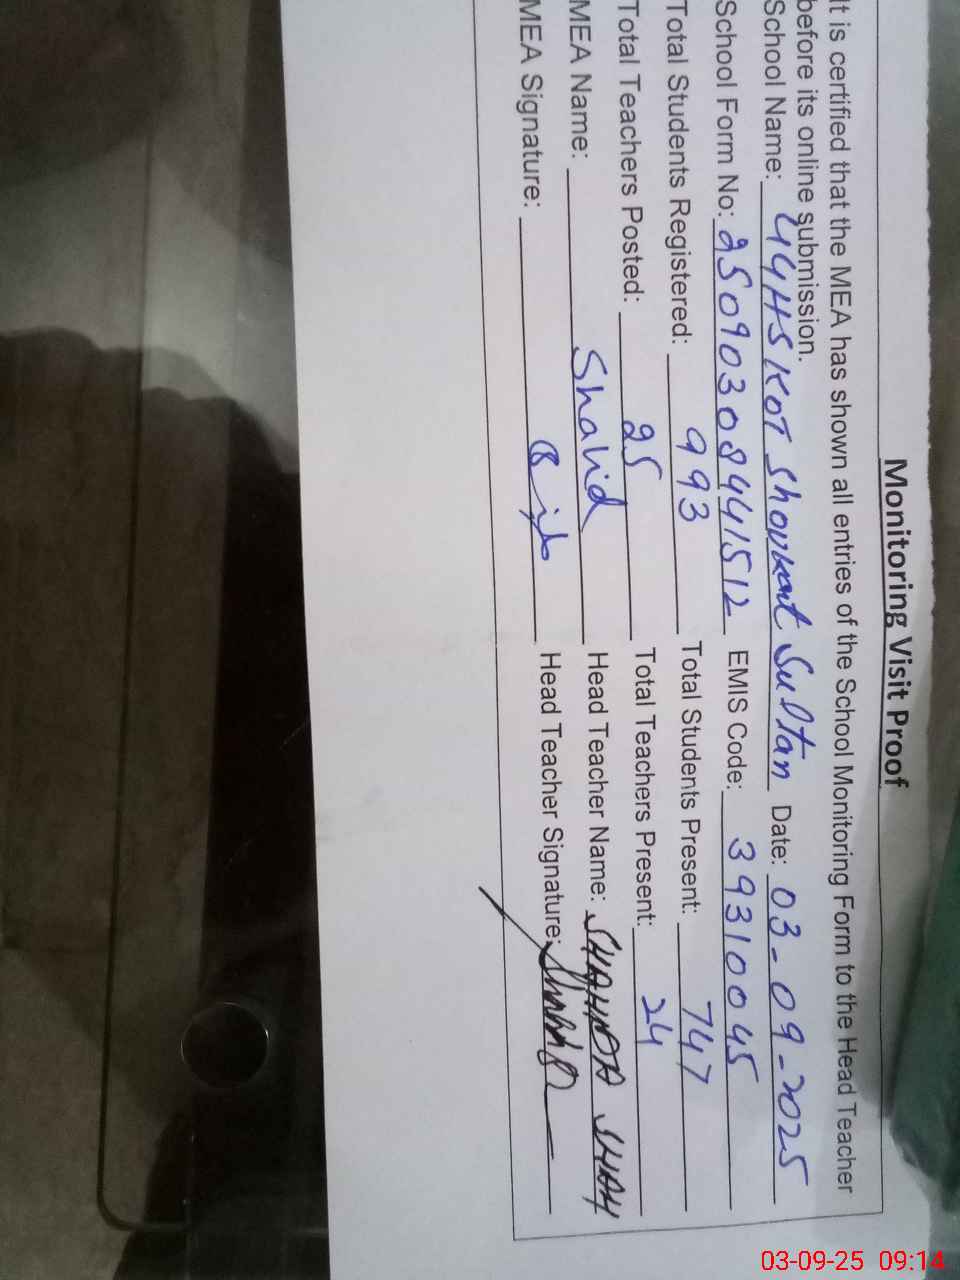 Monitoring Visit Proof
It is certified that the MEA has shown all entries of the School Monitoring Form to the Head Teacher
before its online submission.
School Name: GGHS KOT Shoukat Sultan Date: 03-09-2025
School Form No: 25090308441512 EMIS Code: 39310045
Total Students Registered: 993 Total Students Present: 747
Total Teachers Posted: 25 Total Teachers Present: 24
MEA Name: Shahid Head Teacher Name: SHAHIDA SHAH
MEA Signature: Head Teacher Signature:
03-09-25 09:14